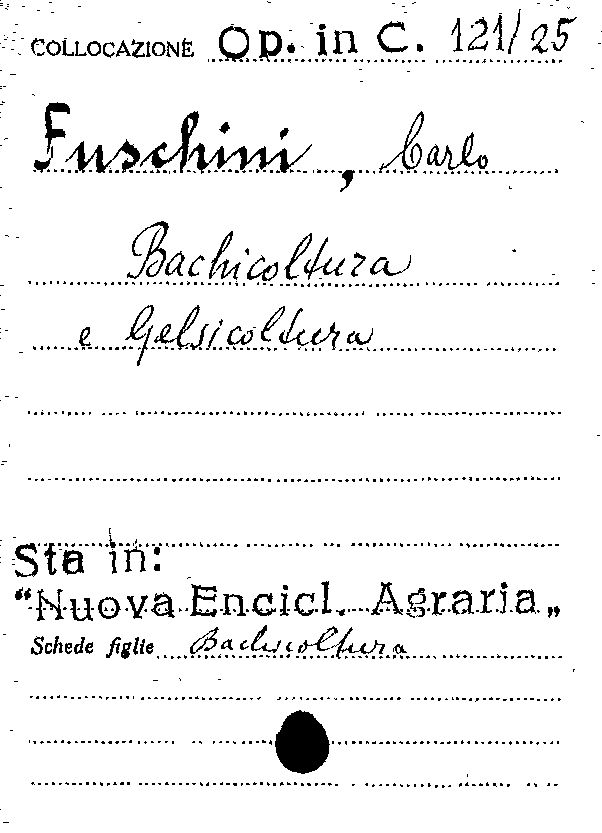 COLLOCAZIONE Op. in C. 121/25
Fuschini, Carlo
Bachicoltura
e Gelsicoltura
Sta in:
"Nuova Encicl. Agraria„
Schede figlie Bachicoltura